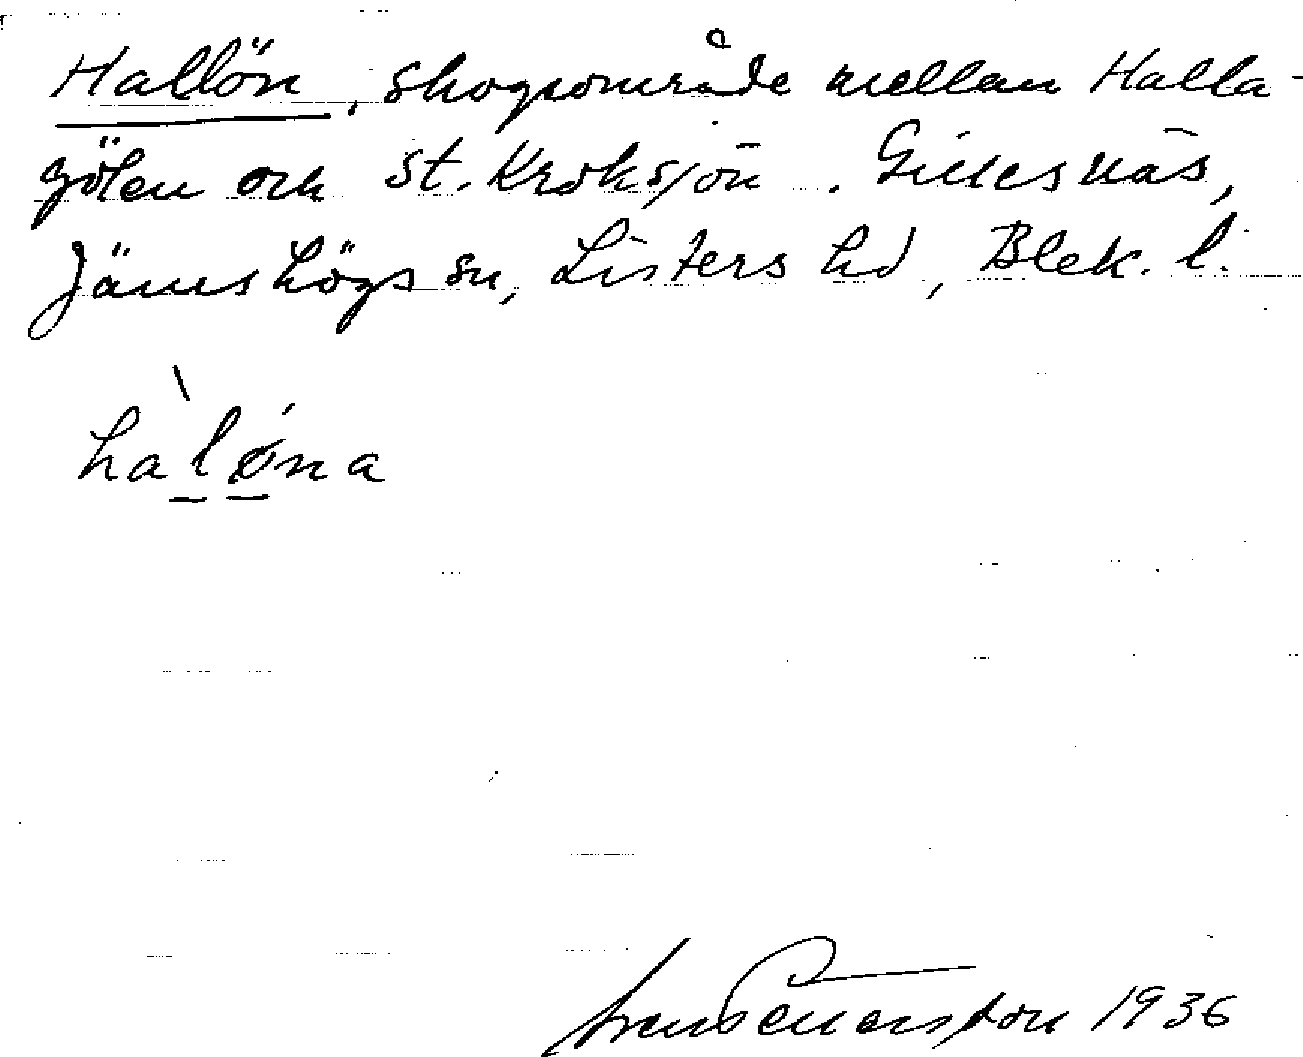 Hallön, skogsområde mellan Halla-
gölen och St. Kroksjön. Gillesnäs,
Jämshögs sn, Listers hd, Blek. l.
hàlø´na
1936